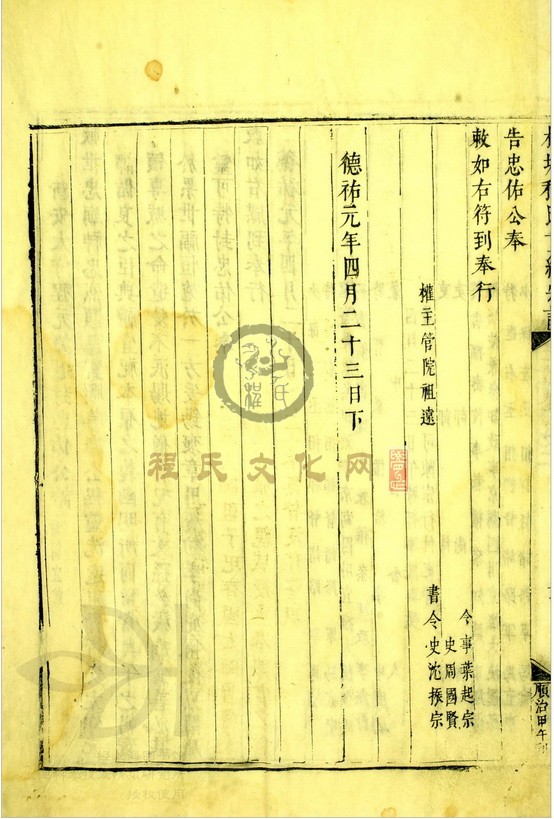 告忠佑公奉
敕如右符到奉行
權主管院祖遠
令事葉起宗
史周國賢
書令史沈振宗
德祐元年四月二十三日下
順治甲午刊
程氏文化网
授权使用